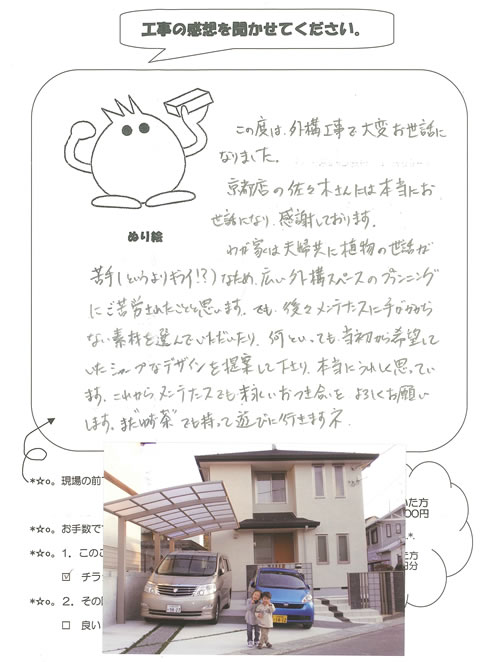 工事の感想を聞かせてください。
ぬり絵
この度は、外構工事で大変お世話に
なりました。
京都店の佐々木さんには本当にお
世話になり、感謝しております。
わが家は夫婦共に植物の世話が
苦手(というよりキライ!?)なため、広い外構スペースのプランニング
にご苦労されたことと思います。でも、後々メンテナンスに手がかから
ない素材を選んでいただいたり、何といっても当初から希望して
いたシャープなデザインを提案して下さり、本当にうれしく思ってい
ます。これからメンテナンスでも末永いおつき合いを よろしくお願い
します。また
でも持って遊びに行きますネ.
*☆。現場の前
いた方
00円
*☆。お手数で
*☆。1.このこ
☑ チラ
*☆。2.その
□ 良い